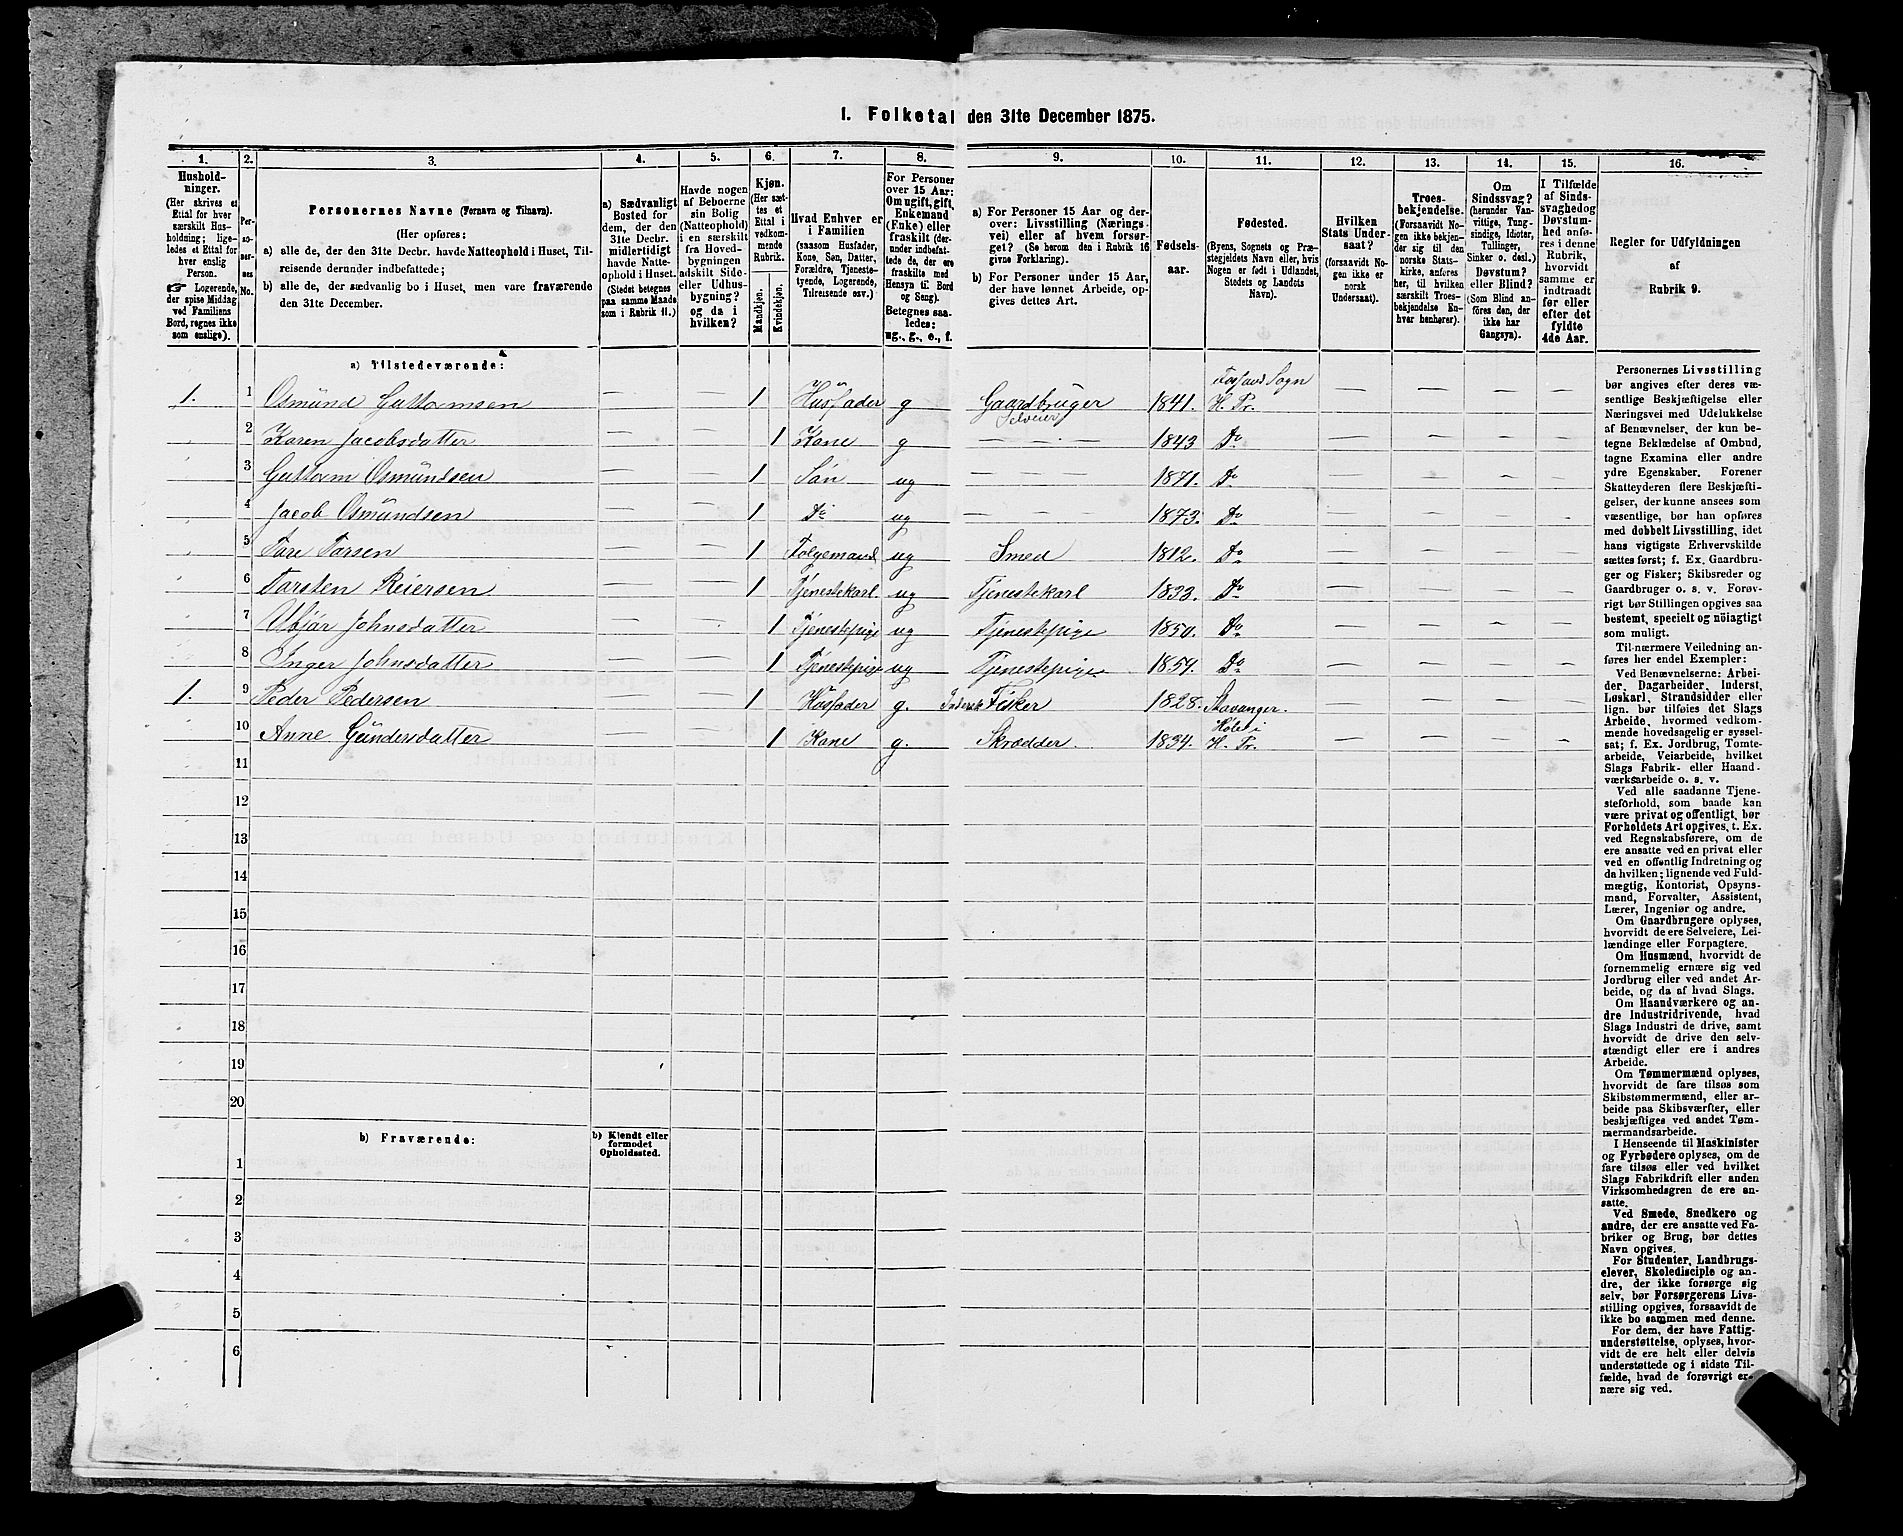 1. Folketal den 31te December 1875.
1. 2. 3. 4. 5. 6. 7. 8. 9. 10. 11. 12. 13. 14. 15. 16.
Hushold-
ninger.
(Her skrives et
Ettal for hver
særskilt Hus-
holdning; lige-
ledes et Ettal for
hver enslig
Person.
☛ Logerende,
der spise Middag
ved Familiens
Bord, regnes ikke
som enslige).
Per-
so-
ner-
nes
No.
Personernes Navne (Fornavn og Tilnavn).
(Her opføres:
a) alle de, der den 31te Decbr. havde Natteophold i Huset, Til-
reisende derunder indbefattede;
b) alle de, der sædvanlig bo i Huset, men vare fraværende
den 31te December.
a) Sædvanligt
Bosted for
dem, der den
31te Decbr.
midlertidigt
havde Natte-
ophold i Huset.
(Stedet betegnes
paa samme Maade
som i Rubrik 11.)
Havde nogen
af Beboerne
sin Bolig
(Natteophold)
i en særskilt
fra Hoved-
bygningen
adskilt Side-
eller Udhus-
bygning?
og da i
hvilken?
Kjøn.
(Her sæt-
tes et
Ettal i
vedkom-
mende
Rubrik.
Mandkjøn.
Kvindekjøn.
Hvad Enhver er
i Familien
(saasom Husfader,
Kone, Søn, Datter,
Forældre, Tjeneste-
tyende, Logerende,
Tilreisende osv.)
For Personer
over 15 Aar:
Om ugift, gift,
Enkemand
(Enke) eller
fraskilt (der-
under indbefat-
tede de, der ere
fraskilte med
Hensyn til Bord
og Seng).
Betegnes saa-
ledes:
ug., g., e., f.
a) For Personer 15 Aar og der-
over: Livsstilling (Nærings-
vei) eller af hvem forsør-
get? (Se herom den i Rubrik 16
givne Forklaring).
b) For Personer under 15 Aar,
der have lønnet Arbeide, op-
gives dettes Art.
Fødsels-
aar.
Fødested.
(Byens, Sognets og Præ-
stegjeldets Navn eller, hvis
Nogen er født i Udlandet,
Stedets og Landets
Navn).
Hvilken
Stats Under-
saat?
(forsaavidt No-
gen ikke er
norsk
Undersaat).
Troes-
bekjendelse.
(Forsaavidt No-
gen ikke bekjen-
der sig til den
norske Stats-
kirke, anføres
her, til hvilken
særskilt Troes-
bekjendelse En-
hver henhører).
Om
Sindssvag?
(herunder Van-
vittige, Tung-
sindige, Idioter,
Tullinger,
Sinker o. desl.)
Døvstum?
eller Blind?
(Som Blind an-
føres den, der
ikke har
Gangsyn).
I Tilfælde
af Sinds-
svaghed og
Døvstum-
hed anfø-
res i denne
Rubrik,
hvorvidt
samme er
indtraadt
før eller
efter det
fyldte
4de Aar.
Regler for Udfyldningen
af
Rubrik 9.
a) Tilstedeværende:
1. 1 Osmünd Guttormsen — — 1 Husfader g Gaardbruger Selveier 1841. Fossand Sogn H. Pr. — — — —
2 Karen Jacobsdatter — — 1 Kone g — — 1843 Do — — — —
3 Guttorm Osmündsen — — 1 Søn ug — — 1871. Do — — — —
4 Jacob Osmündsen — — 1 Do ug — — 1873. Do — — — —
5 Tore Torsen — — 1 Folgemand ug Smed 1812. Do — — — —
6 Torsten Reiersen — — 1 Tjenestekarl. ug Tjenestekarl 1833. Do — — — —
7 Johnsdatter — — 1 Tjenestepige ug Tjenestepige 1850. Do — — — —
8 Inger Johnsdatter — — 1 Tjenestepige ug Tjenestepige 1854. Do — — — —
1. 9 Peder Pedersen — — 1 Husfader g. Inderst Fisker 1828. Stavanger. — — — —
10 Anne Gündersdatter — — 1 Kone g. Skrædder. 1834. Hölei i H. Pr. — — — —
11
12
13
14
15
16
17
18
19
20
b) Fraværende:
b) Kjendt eller
formodet
Opholdssted.
1
2
3
4
5
6
Personernes Livsstilling
bør angives efter deres væ-
sentlige Beskjæftigelse eller
Næringsvei med Udelukkelse
af Benævnelser, der kun be-
tegne Beklædelse af Ombud,
tagne Examina eller andre
ydre Egenskaber. Forener
Skatteyderen flere Beskjæfti-
gelser, der kunne ansees som
væsentlige, bør han opføres
med dobbelt Livsstilling, idet
hans vigtigste Erhvervskilde
sættes først; f. Ex. Gaardbru-
ger og Fisker; Skibsreder og
Gaardbruger o. s. v. Forøv-
rigt bør Stillingen opgives saa
bestemt, specielt og nøiagtigt
som muligt.
Til nærmere Veiledning an-
føres her endel Exempler:
Ved Benævnelserne: Arbei-
der, Dagarbeider, Inderst,
Løskarl, Strandsidder eller
lign. bør tilføies det Slags
Arbeide, hvormed vedkom-
mende hovedsagelig er syssel-
sat; f. Ex. Jordbrug, Tomte-
arbeide, Veiarbeide, hvilket
Slags Fabrik- eller Haand-
værksarbeide o. s. v.
Ved alle saadanne Tjene-
steforhold, som baade kan
være privat og offentligt, bør
Forholdets Art opgives, t. Ex.
ved Regnskabsførere, om de
ere ansatte ved en privat eller
ved en offentlig Indretning og
da hvilken; lignende ved Fuld-
mægtig, Kontorist, Opsyns-
mand, Forvalter, Assistent,
Lærer, Ingeniør og andre.
Om Gaardbrugere oplyses,
hvorvidt de ere Selveiere, Lei-
lændinge eller Forpagtere.
Om Husmænd, hvorvidt de
fornemmelig ernære sig ved
Jordbrug eller ved andet Ar-
beide, og da af hvad Slags.
Om Haandværkere og an-
dre Industridrivende, hvad
Slags Industri de drive, samt
hvorvidt de drive den selv-
stændigt eller ere i andres
Arbeide.
Om Tømmermænd oplyses,
hvorvidt de fare tilsøs som
Skibstømmermænd, eller ar-
beide paa Skibsværfter, eller
beskjæftiges ved andet Tøm-
mermandsarbeide.
I Henseende til Maskinister
og Fyrbødere oplyses, om de
fare tilsøs eller ved hvilket
Slags Fabrikdrift eller anden
Virksomhedsgren de ere an-
satte.
Ved Smede, Snedkere og
andre, der ere ansatte ved Fa-
briker og Brug, bør dettes
Navn opgives.
For Studenter, Landbrugs-
elever, Skoledisciple og an-
dre, der ikke forsørge sig
selv, bør Forsørgerens Livs-
stilling opgives, forsaavidt de
ikke bo sammen med denne.
For dem, der have Fattig-
understøttelse, oplyses, hvor-
vidt de ere helt eller delvis
understøttede og i sidste Til-
fælde, hvad de forøvrigt er-
nære sig ved.